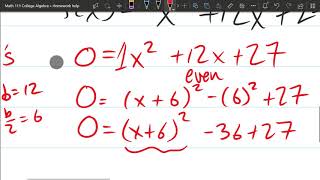 Math 111 College Algebra - Homework help
x + 12x + 2
's
0 = 1x² + 12x + 27
even
b = 12
0 = (x + 6)² - (6)² + 27
b/2 = 6
0 = (x + 6)² - 36 + 27